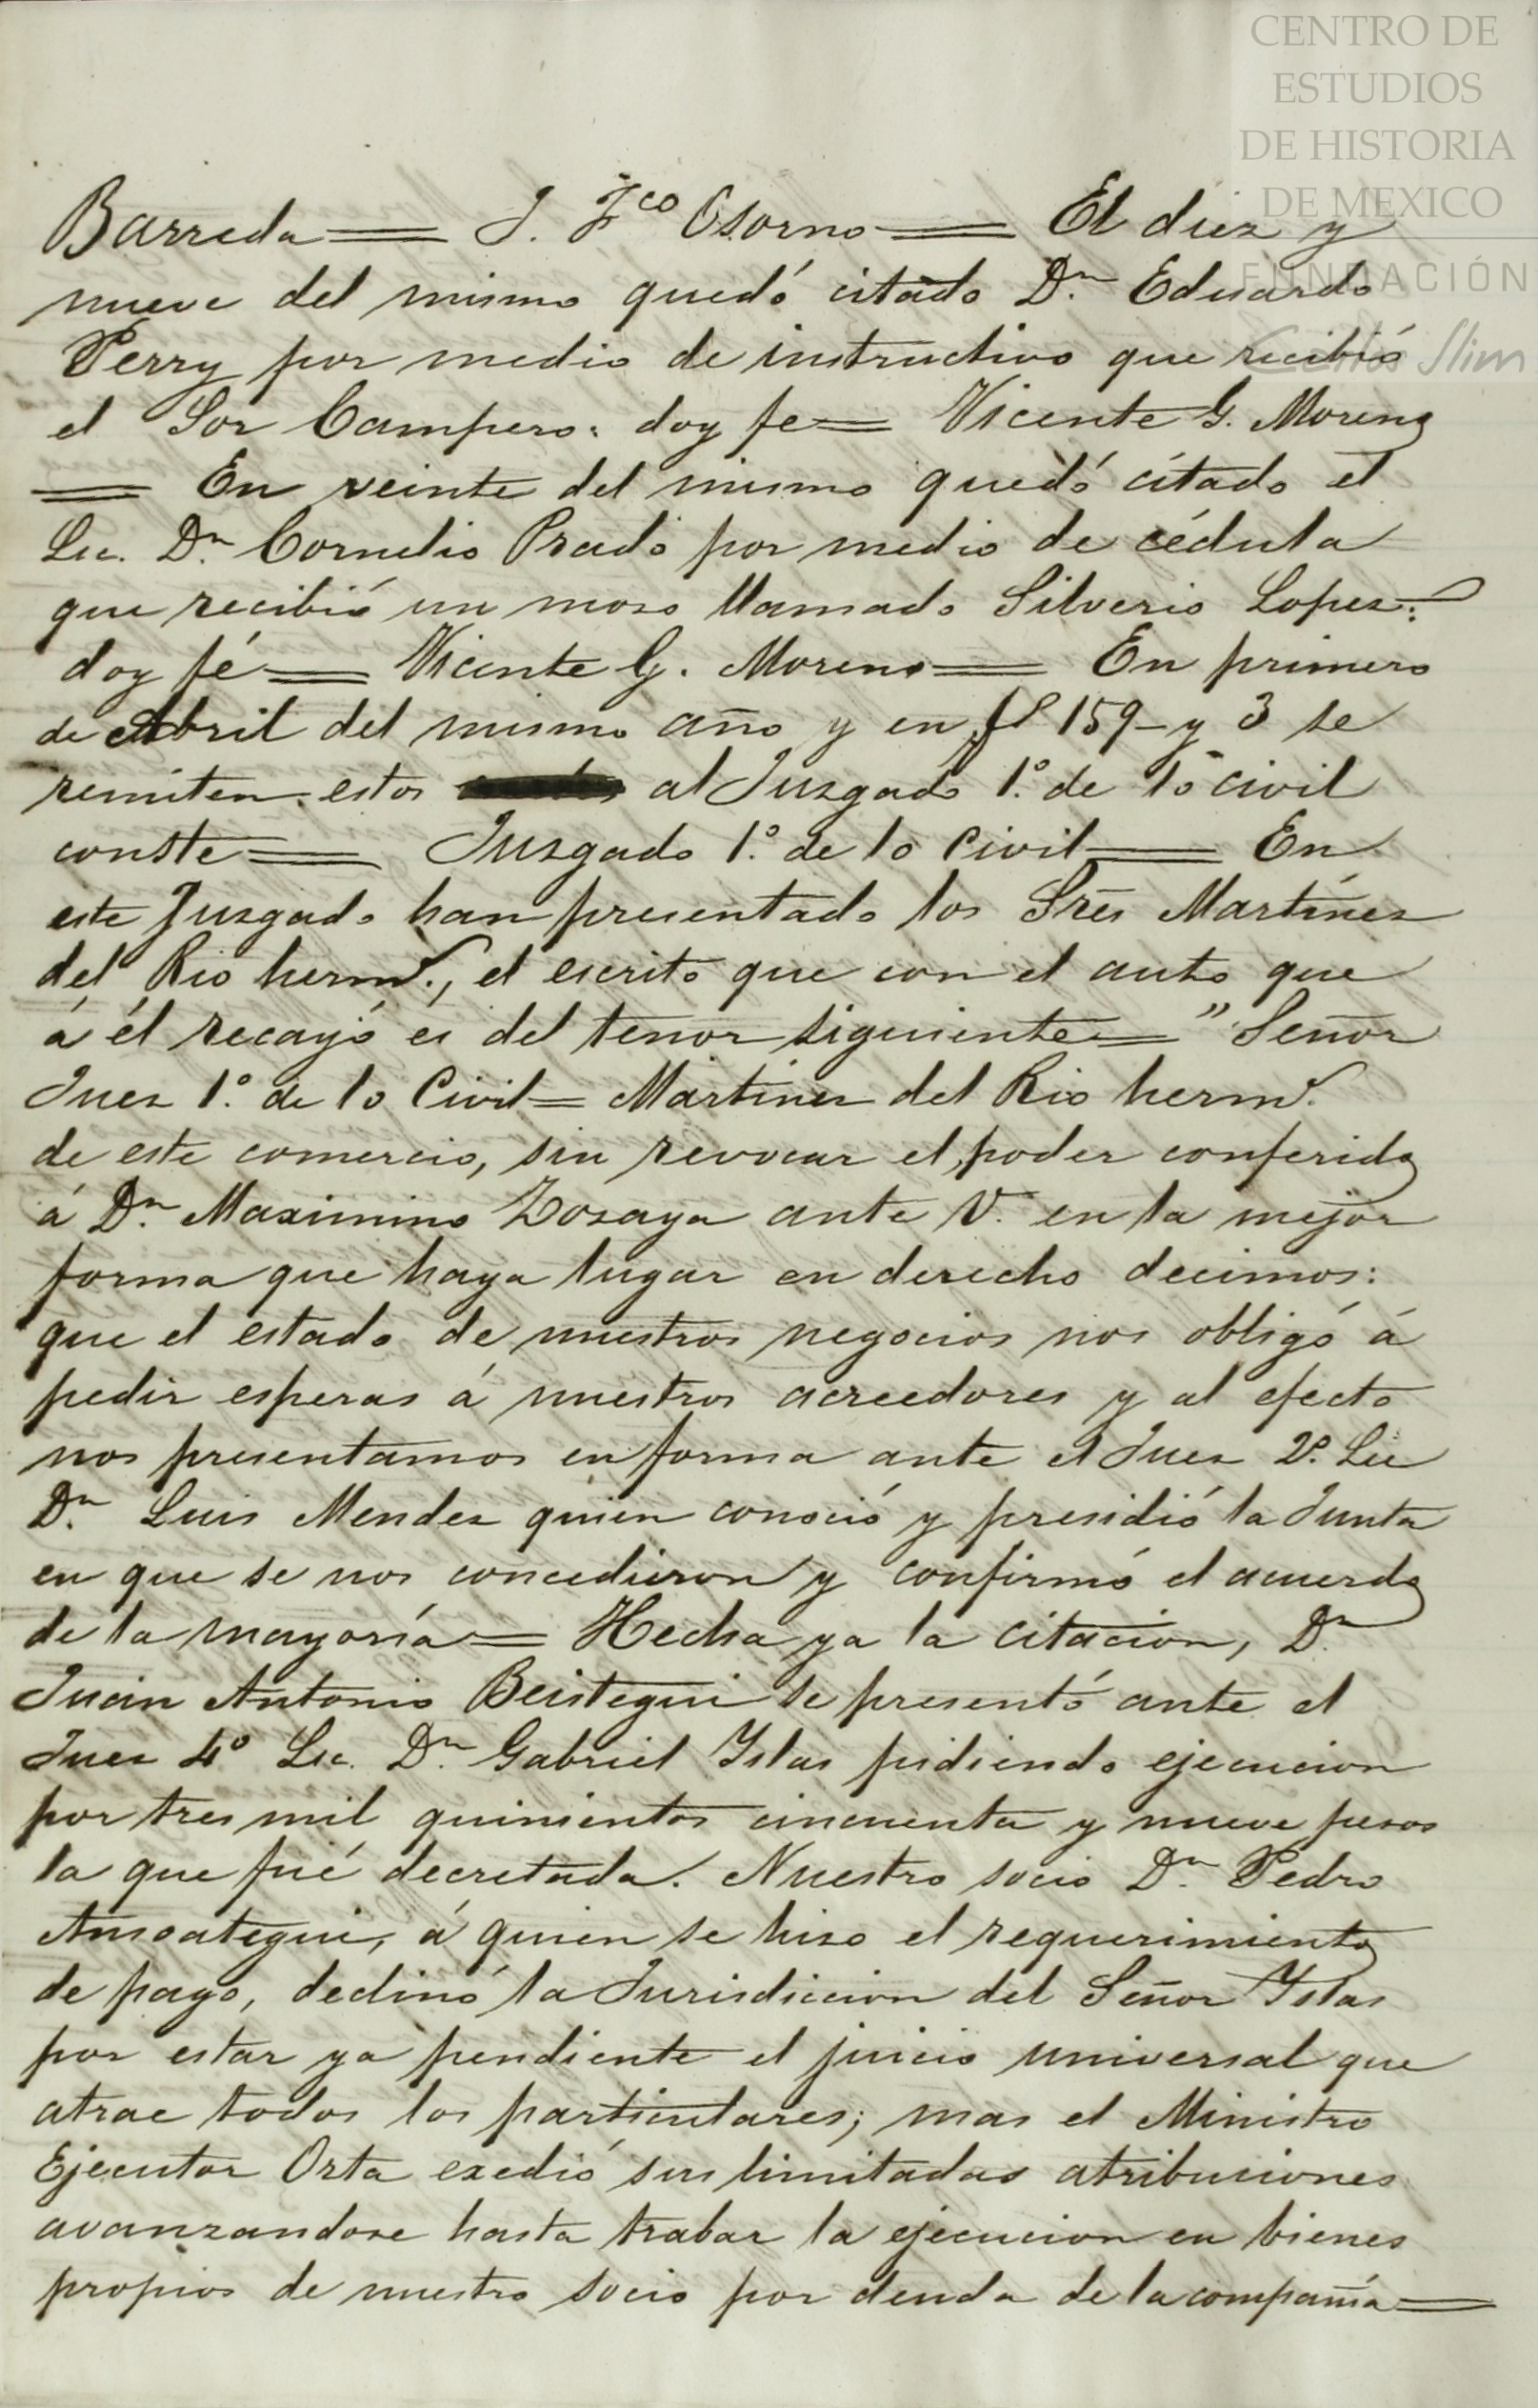 CENTRO DE
ESTUDIOS
DE HISTORIA
DE MEXICO
FUNDACIÓN
Carlos Slim
Barreda = J. Fco Osorno = El diez y
nueve del mismo quedó citado Dn. Eduardo
Perry por medio de instructivo que recibió
el Sor Campero: doy fe = Vicente G. Moreno
= En veinte del mismo quedó citado el
Lic. Dn Cornelio Prado por medio de cédula
que recibió un moso llamado Silverio Lopez:
doy fé = Vicente G. Moreno = En primero
de Abril del mismo año y en fs 159 y 3 se
remiten estos al Juzgado 1º. de lo civil
conste = Juzgado 1º. de lo Civil = En
este Juzgado han presentado los Sres Martínez
del Rio herms., el escrito que con el auto que
á él recayó es del tenor siguiente = "Señor
Juez 1º. de lo Civil = Martinez del Rio herms.
de este comercio, sin revocar el poder conferido
á Dn. Maximino Zozaya ante V. en la mejor
forma que haya lugar en derecho decimos:
que el estado de nuestros negocios nos obligó á
pedir esperas á nuestros acreedores y al efecto
nos presentamos en forma ante el Juez 2º. Lic
Dn. Luis Mendez quien conoció y presidió la Junta
en que se nos concedieron y confirmó el acuerdo
de la mayoría = Hecha ya la citacion, Dn.
Juan Antonio Beistegui se presentó ante el
Juez 4º Lic. Dn. Gabriel Yslas pidiendo ejecucion
por tres mil quinientos cincuenta y nueve pesos
la que fué decretada. Nuestro socio Dn. Pedro
Ansoategui, á quien se hizo el requerimiento
de pago, declinó la Jurisdiccion del Señor Yslas
por estar ya pendiente el juicio universal que
atrae todos los particulares; mas el Ministro
Ejecutor Orta exedió sus limitadas atribuciones
avanzandose hasta trabar la ejecucion en bienes
propios de nuestro socio por deuda de la compañía =